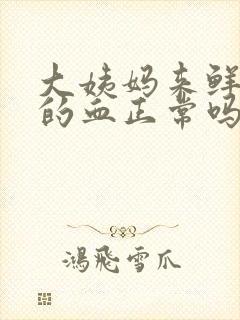 大姨妈来鲜
的血正常吗
鸿飞雪爪